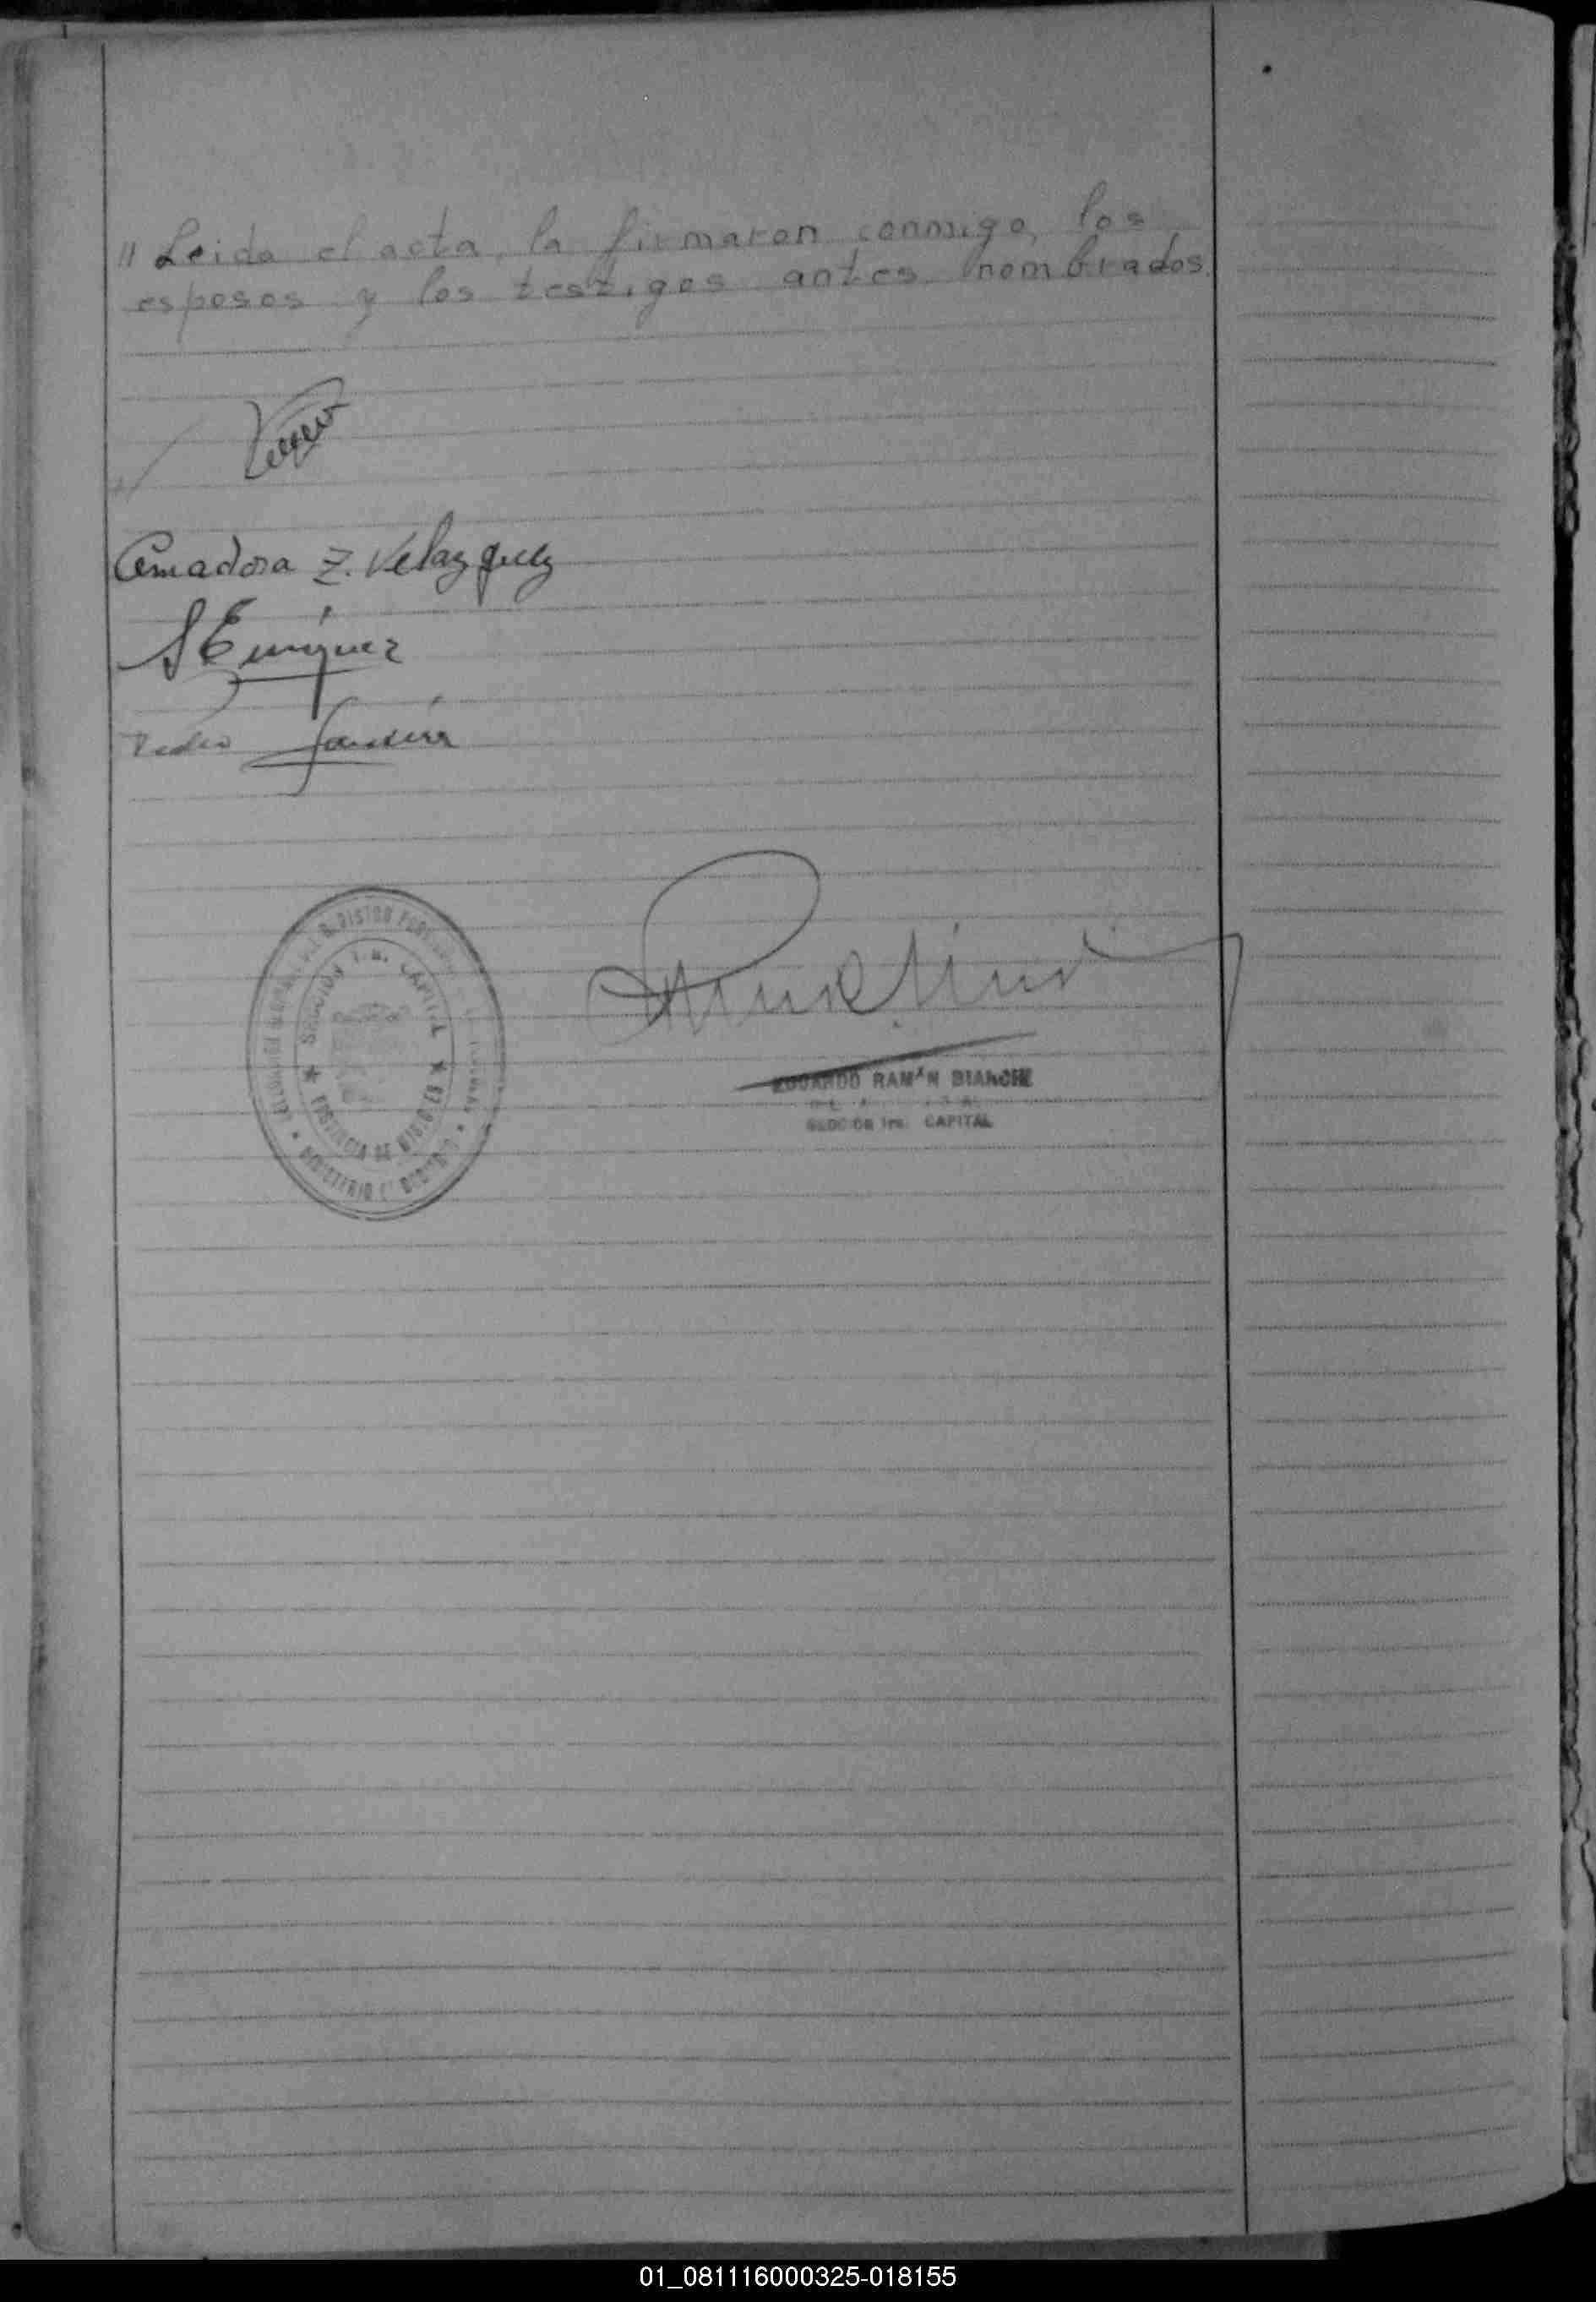 " Leida el acta, la firmaron conmigo, los
esposos y los testigos antes nombrados.
Amadora Z. Velazquez
S Enriquez
Pedro
SECCION 1a. CAPITAL
PROVINCIA DE MISIONES
EDUARDO RAMON BIANCHI
SECCION 1ra. CAPITAL
01_081116000325-018155